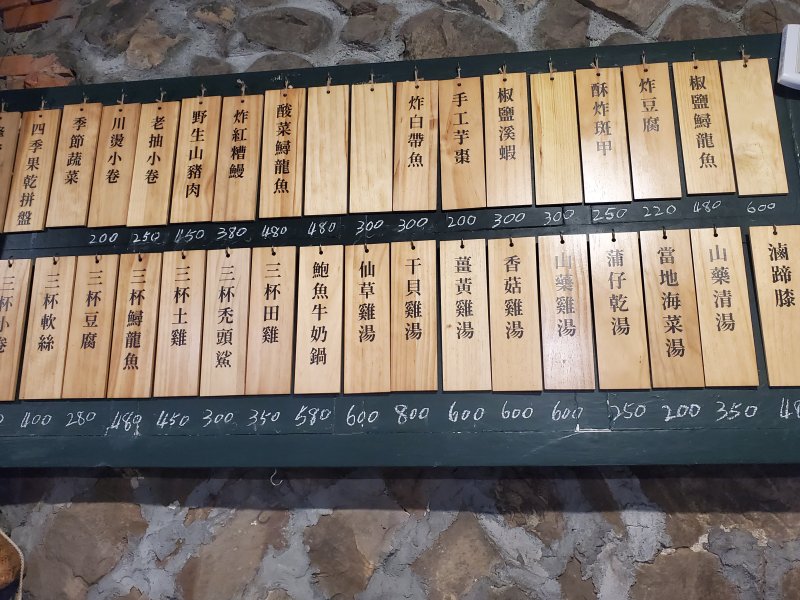 四季果乾拼盤
季節蔬菜
川燙小卷
老抽小卷
野生山豬肉
炸紅糟鰻
酸菜鱘龍魚
炸白帶魚
手工芋棗
椒鹽溪蝦
酥炸斑甲
炸豆腐
椒鹽鱘龍魚
200 250 450 380 480 480 300 300 200 300 300 250 220 480 600
三杯小卷
三杯軟絲
三杯豆腐
三杯鱘龍魚
三杯土雞
三杯禿頭鯊
三杯田雞
鮑魚牛奶鍋
仙草雞湯
干貝雞湯
薑黃雞湯
香菇雞湯
山藥雞湯
蒲仔乾湯
當地海菜湯
山藥清湯
滷蹄膝
400 280 480 450 300 350 580 600 800 600 600 600 250 200 350